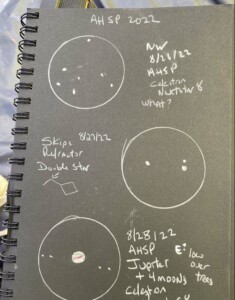 AHSP 2022
NW
8/27/22
AHSP
Celestron
NexStar 8
What?
Skips 8/27/22
Refractor
Double Star
8/28/22
AHSP E: low
Jupiter over
+ 4 moons trees
Celestron